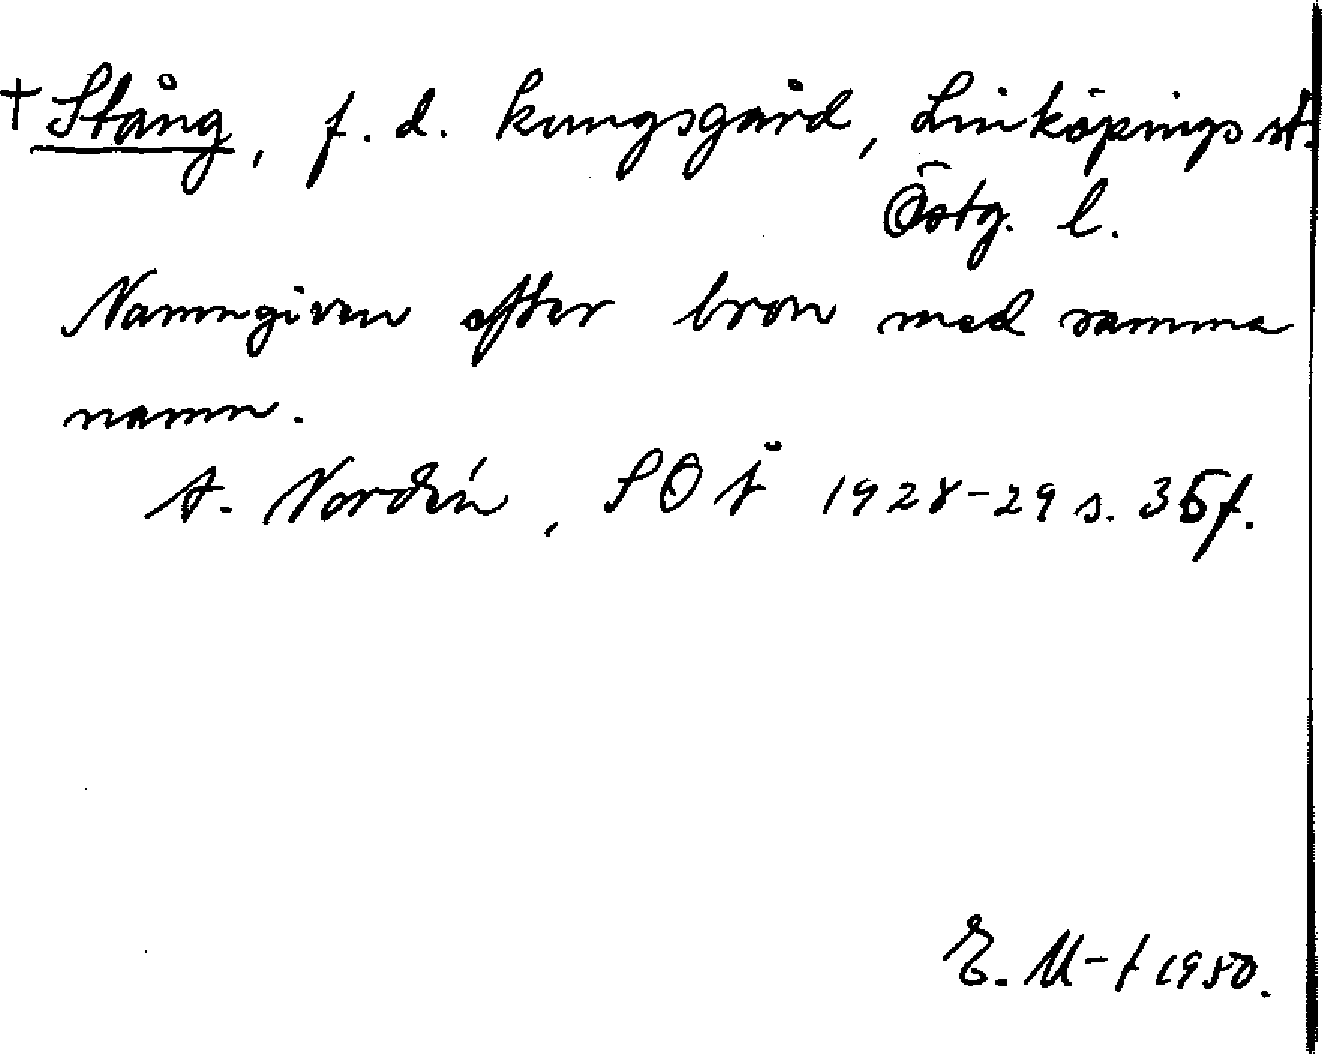 † Stång, f. d. kungsgård, Linköpings st.
Östg. l.
Namngiven efter bron med samma
namn.
A. Nordén, SOÅ 1928-29 s. 35f.
E. M-t 1950.